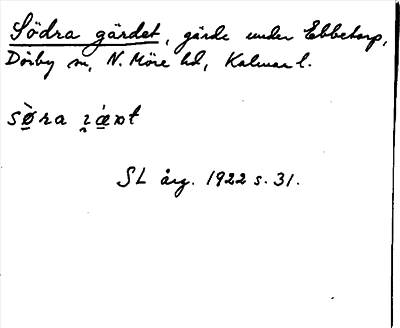 Södra gärdet, gärde under Ebbetorp,
Dörby sn, N. Möre hd, Kalmar l.
sø̀ra
SL årg. 1922 s. 31.